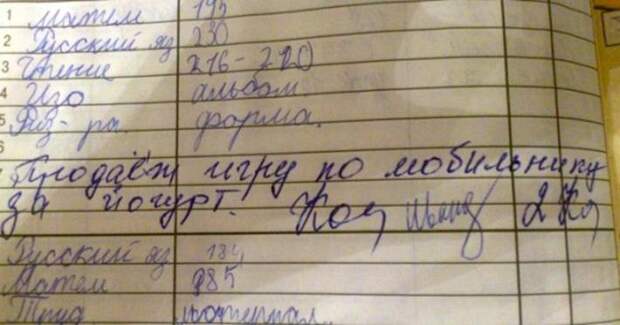 1 Матем 195
2 Русский яз 230
3 Чтение 216-220
4 Изо альбом
5 Физ-ра. форма.
6
Продаёт игру по мобильнику
за йогурт.
Русский яз 184
Матем 185
Труд материал.